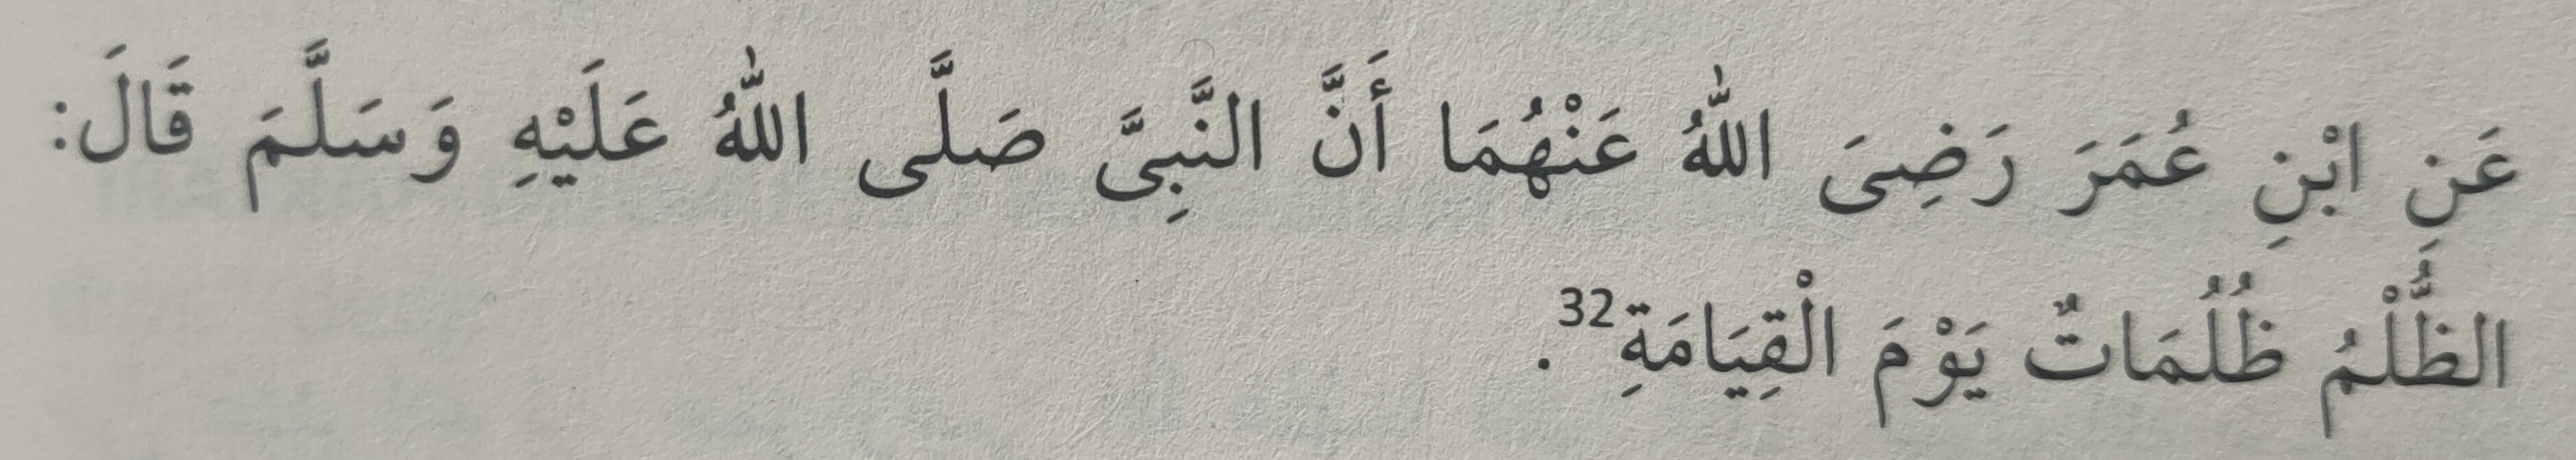 عَنِ ابْنِ عُمَرَ رَضِىَ اللّٰهُ عَنْهُمَا أَنَّ النَّبِىَّ صَلَّى اللّٰهُ عَلَيْهِ وَسَلَّمَ قَالَ:
الظُّلْمُ ظُلُمَاتٌ يَوْمَ الْقِيَامَةِ32.